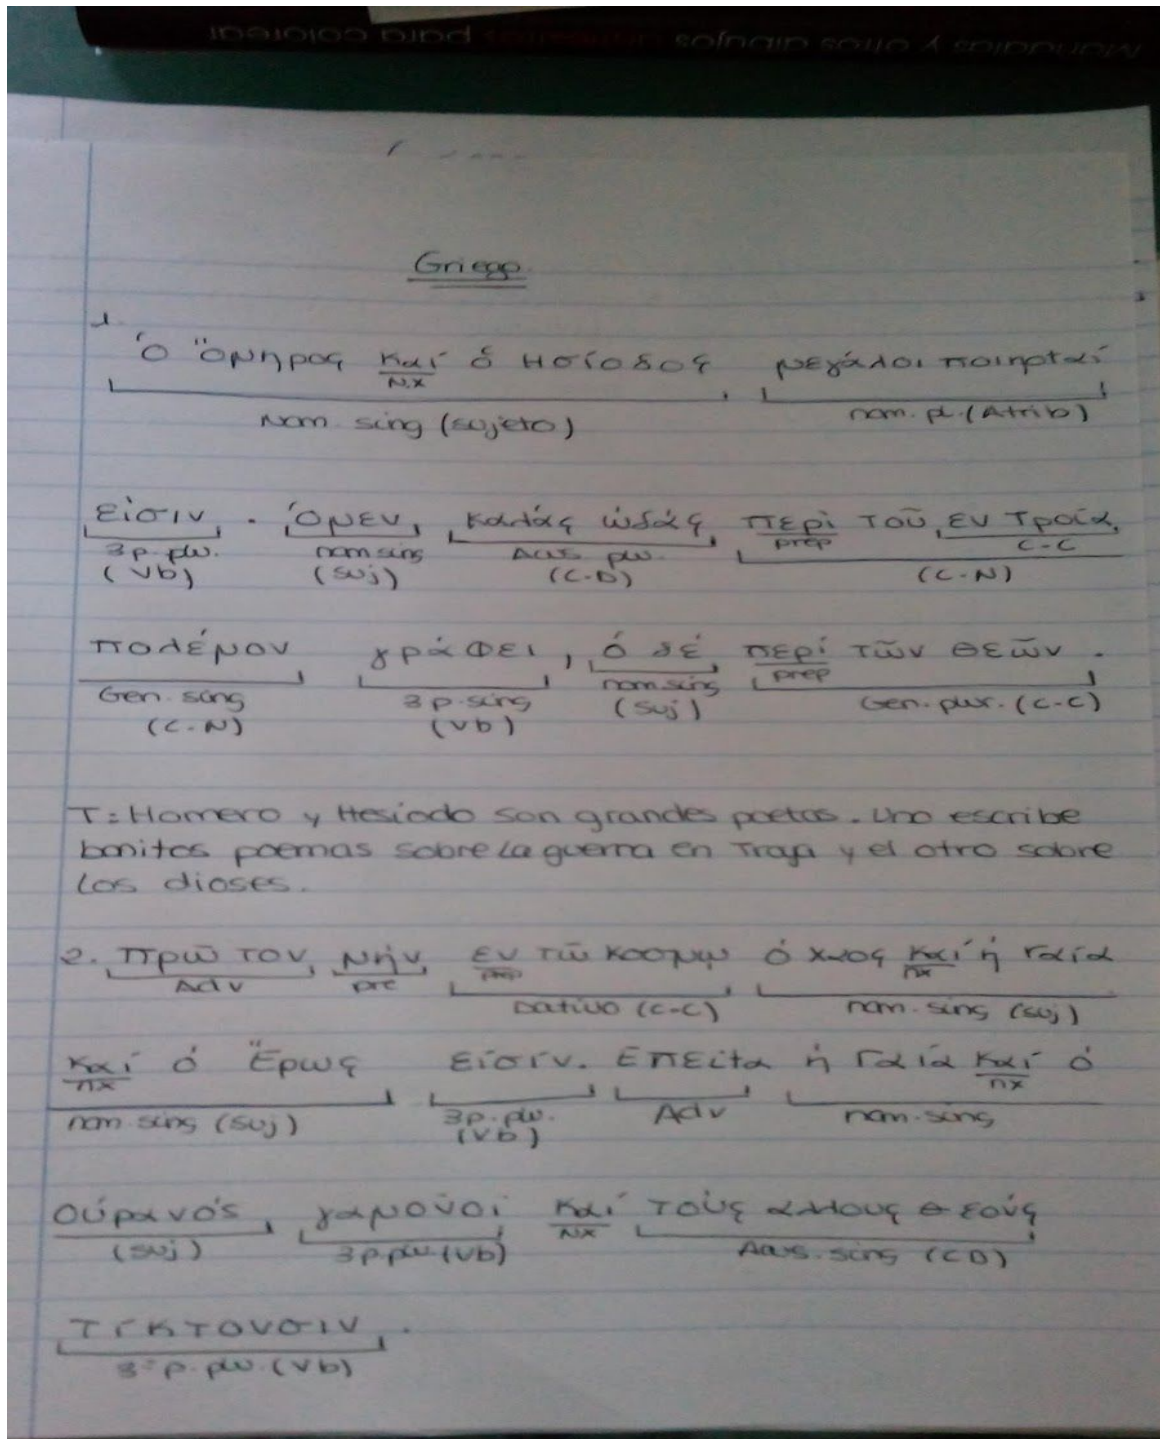 Mandalas y otros dibujos para colorear
Griego.
1.
Ὁ Ὅμηρος καί ὁ Ησίοδος μεγάλοι ποιηταί
nx
Nom. sing (sujeto) nom. pl. (Atrib)
εἰσιν. Ὁ μεν καλάς ᾠδάς περὶ τοῦ εν Τροίᾳ
3p. plu. nom sing Acus plu. prep C-C
(Vb) (Suj) (C.D) (C-N)
πολέμου γράφει, ὁ δέ περί τῶν θεῶν.
Gen. sing 3p. sing nom sing prep Gen. plur. (C-C)
(C-N) (Vb) (Suj)
T: Homero y Hesíodo son grandes poetas. Uno escribe
bonitos poemas sobre la guerra en Troya y el otro sobre
los dioses.
2. Πρῶτον μήν εν τῷ κοσμῳ ὁ χαος καί ἡ Γαία
Adv prep nx
Dativo (C-C) nom. sing (suj)
καί ὁ Ἔρως εἰσίν. Επειτα ἡ Γαία καί ὁ
nx 3p. plu. Adv nx
nom. sing (Suj) (Vb) nom. sing
Οὐρανός, γαμοῦσι καί τοὺς αλλους θεούς
(Suj) 3p plu (Vb) nx Acus. sing (CD)
τίκτουσιν.
3ª p. plu. (Vb)